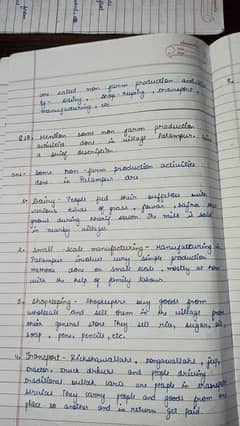 are called non farm production
eg- dairy, shop-keeping, transport,
manufacturing, etc.
Mention some non farm production
activities done in village Palampur.
a brief description.
ans- Some non farm production activities
done in Palampur are
1. Dairy- People feed their buffaloes with
various kinds of grass, jowar, bajra
grows during rainy season. The milk is sold
in nearby villages.
2. Small-scale manufacturing- Manufacturing in
Palampur involves very simple production
methods done on small scale, mostly at home
with the help of family labour.
3. Shopkeeping- shopkeepers buy goods from
wholesale and sell them in the village from
their general store. They sell rice, sugar, oil,
soap, pens, pencils, etc.
4. Transport- Rickshawallahs, tongawallahs, jeep,
tractor, truck drivers and people driving
traditional bullock carts are people in transport
services. They carry people and goods from one
place to another and in return get paid.